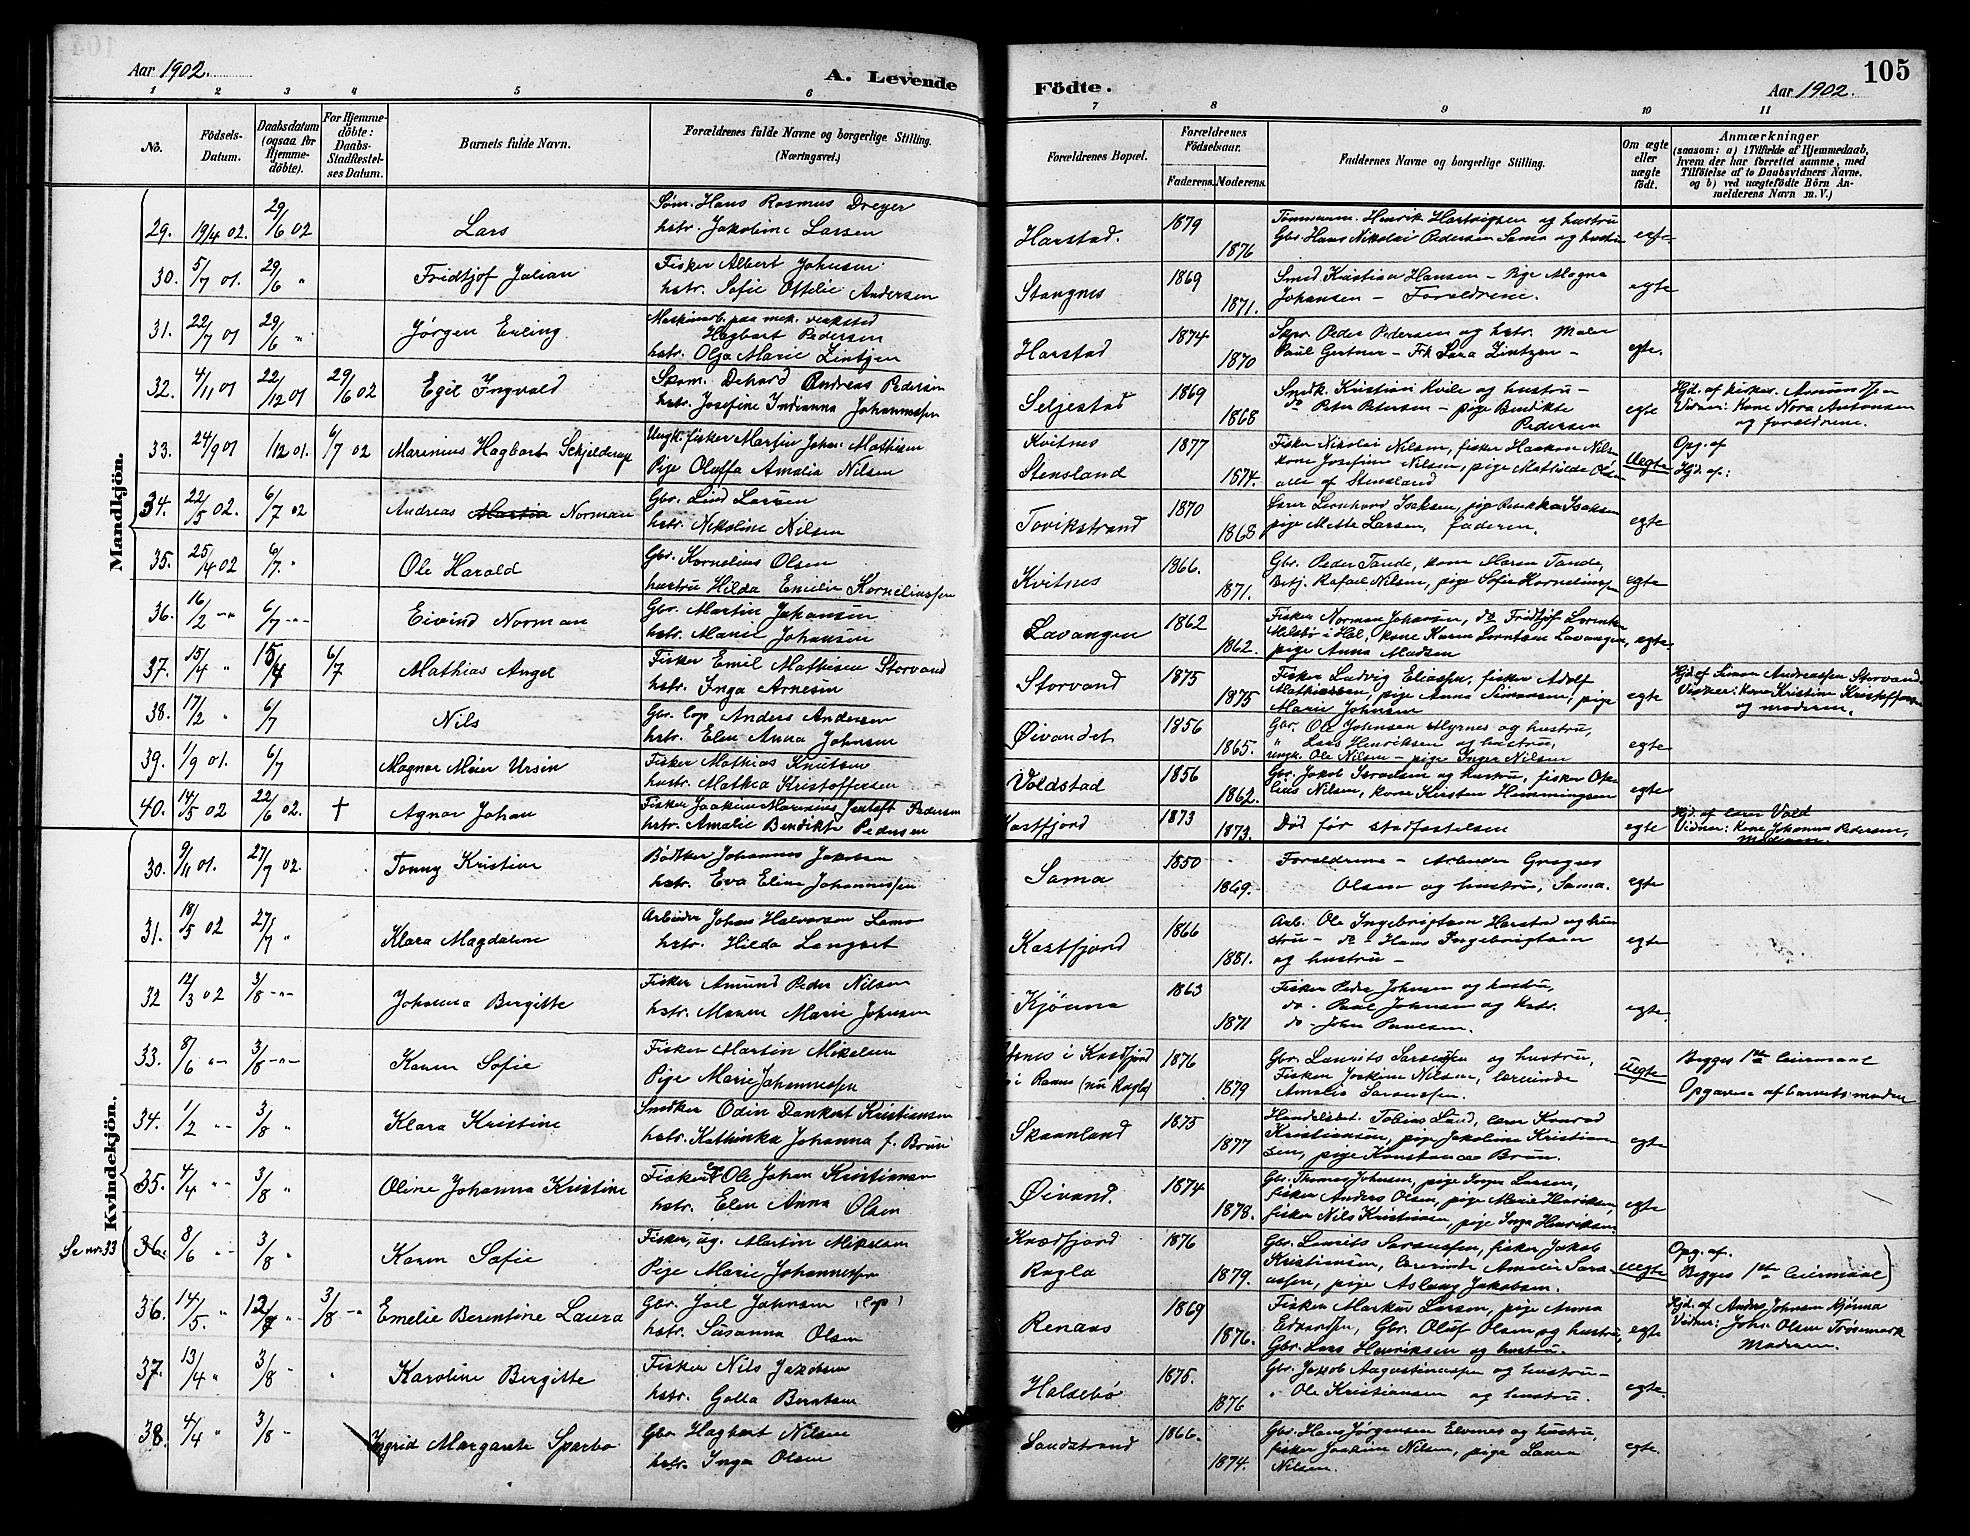 Aar 1902.
A. Levende
Födte.
105
Aar 1902.
1 2 3 4 5 6 7 8 9 10 11
No.
Födsels-
Datum.
Daabsdatum
(ogsaa for
Hjemme-
döbte).
For Hjemme-
döbte:
Daabs-
Stadfæstel-
ses Datum.
Barnets fulde Navn.
Forældrenes fulde Navne og borgerlige Stilling.
(Næringsvei.)
Forældrenes Bopæl.
Forældrenes
Födselsaar.
Faderens. Moderens.
Faddernes Navne og borgerlige Stilling.
Om ægte
eller
uægte
födt.
Anmærkninger
(saasom: a) i Tilfælde af Hjemmedaab,
hvem der har forrettet samme, med
Tilföielse af to Daabsvidners Navne.
og b) ved uægtefödte Börn An-
melderens Navn m. V.)
Mandkjön.
29. 19/4 02. 29/6 02 Lars
Søm. Hans Rasmus Dreyer
hstr. Jakobine Larsen
Harstad. 1879 1876
Tømmerm. Henrik Hartvigsen og hustru
Gbr. Hans Nikolai Pedersen Sama og hustru
30. 5/7 01. 29/6 " Fridtjof Julian
Fisker Albert Johnsen
hstr. Sofie Ottelie Andersen
Stangnes 1869 1871.
Smed Kristian Hansen – Pige Magna
Johansen – Forældrene.
egte
31. 22/7 01 29/6 " Jørgen Erling
Maskinarb. paa mek. verksted
Hagbart Pedersen
hstr. Olga Marie Zintzen
Harstad 1874 1870
Skpr. Peder Pedersen og hstr. Maler
Paul Gertner – Frk Lara Zintzen –
egte.
32. 4/11 01 22/12 01 29/6 02 Egil Ingvald
Skom. Dehard Andreas Pedersen
hstr. Josefine Indianna Johannessen
Seljestad 1869 1868
Smedk. Kristian Kvile og hustru –
do Peter Petersen – pige Bendikte
Pedersen
egte
Vidner: Kone Nora Antonsen
og forældrene.
33. 24/9 01 1/12 01. 6/7 02 Marinius Hagbart Schjelderup
Ungk. fisker Martin Johan Mathisen
Pige Oluffa Amalia Nilsen
Kvitnes
Stensland
1877 1874.
Fisker Nikolai Nilsen, fisker Haakon Nilsen
kone Josefine Nilsen, pige Mathilde Olsen
alle af Stensland
Uegte
Opg. af
Hjd. af:
34. 22/5 02. 6/7 02 Andreas Martin Norman
Gbr. Lind Larsen
hstr. Nikoline Nilsen
Tovikstrand 1870 1868
pige Mette Larsen, faderen.
egte
35. 25/4 02 6/7. " Ole Harald
Gbr. Kornelius Olsen
hustru Hilda Emilie Korneliussen
Kvitnes 1866. 1871.
Gbr. Peder Tande, kone Maren Tande,
Bstj. Rafael Nilsen, pige Sofie Korneliussen
egte
36. 16/2 -"- 6/7 -"- Eivind Norman
Gbr. Martin Johansen
hstr. Marie Johansen
Lavangen 1862 1862.
Fisker Norman Johansen, do Fridtjof Lorentsen
Melsbø i Hol, kone Karen Lorntsen Lavangen,
pige Anna Madsen
egte
37. 15/4 " 15/4 6/7 Mathias Angel
Fisker Emil Mathisen Storvand
hstr. Inga Arnesen
Storvand 1875 1875
Fisker Ludvig Eliassen, fisker Adolf
Mathiassen, pige Anna Simonsen, pige
Marie Johnsen
egte
Hjd. af Simon Andreassen Storvand.
Vidner: kone Kristine Kristoffersen
og moderen.
38. 17/2 " 6/7 Nils
Gbr. lap Anders Andersen
hstr. Elen Anna Johnsen
Øivandet 1856 1865.
Gbr. Ole Johnsen Myrnes og hustru,
" Lars Henriksen og hustru,
ungk. Ole Nilsen – pige Inger Nilsen
egte
39. 1/9 01. 6/7 Magnar Meier Ursin
Fisker Mathias Knutsen
hustru Mathea Kristoffersen
Voldstad 1856 1862.
Gbr. Jakob Israelsen og hustru, fisker Ope-
lius Nilsen, kone Kirsten Hemmingsen
egte
40. 14/5 02 22/6 02. † Agnar Johan
Fisker Joakim Marenius Jentoft Pedersen
hstr. Amalie Bendikte Pedersen
Kastfjord 1873 1873.
Død før stadfæstelsen
egte
Hjd. af lærer Vold
Vidner: Kone Johanna Pedersen,
Moderen.
Kvindekjön.
30. 9/11 01. 27/7 02. Tonny Kristine
Bødker Johannes Jakobsen
hstr. Eva Eline Johannessen
Sama 1850 1869.
Forældrene – Arbeider Gregus
Olsen og hustru, Sama.
egte
31. 18/5 02 27/7 " Klara Magdalene
Arbeider Johan Halvorsen Sama
hstr. Hilda Langset
Kastfjord 1866 1881.
Arb. Ole Ingebrigtsen Harstad og hu-
stru – do – Hans Ingebrigtsen
og hustru –
egte
32 12/3 02 3/8 -"- Johanna Bergitte
Fisker Amund Peder Nilsen
hstr. Maren Marie Johnsen
Kjønna 1863 1871
Fisker Peder Johnsen og hustru,
do. Paul Johnsen og hstr.
do. John Paulsen.
egte
33. 8/6 -"- 3/8 -"- Karen Sofie
Fisker Martin Mikelsen
Pige Marie Johannessen
i Kvedfjord
i Ranes (nu Rogla)
1876 1879
Gbr. Laurits Sørensen og hustru,
Fisker Joakim Nilsen, lærerinde
Amalie Sørensen.
Uegte
Begges 1ste leiermaal
Opgaverne af barnets moder
34. 1/2 -"- 3/8 " Klara Kristine
Smedker Odin Dankert Kristiansen
hstr. Kathinka Johanna f. Brun
Skaanland 1875 1877
Handelsbet. Tobias Lund, lærer Konrad
Kristiansen, pige Jakoline Kristian-
sen, pige Konstance Brun.
egte
35. 4/4 -"- 3/8 " Oline Johanna Kristine
Fisker Ole Johan Kristiansen
hstr. Elen Anna Olsen
Øivand. 1874 1878.
Gbr. Thomas Johnsen, pige Inger Larsen,
fisker Anders Olsen, pige Marie Henriksen,
fisker Nils Kristiansen, pige Inga Henriksen
egte
Se nr. 33
36. 8/6 -"- 3/8 " Karen Sofie
Fisker, ug. Martin Mikelsen
Pige Marie Johannessen
Kvædfjord
Rogla
1876 1879.
Gbr. Laurits Sørensen, fisker Jakob
Kristiansen, lærerinde Amalie Søre-
nsen, pige Aslaug Jakobsen.
Uegte
Opg. af.
Begges 1ste leiermaal)
36. 14/5. " 12/7 -"- 3/8 -"- Emelie Berentine Laura
Gbr. Joel Johnsen (lap)
hstr. Susanna Olsen
Renaas 1869 1876.
Fisker Markus Larsen, pige Anna
Edvardsen, Gbr. Oluf Olsen og hustru,
Gbr. Lars Henriksen og hustru.
egte
Hjd. af Anders Johnsen Kjønna
Vidner: John Olsen Trøsemark
Moderen.
37. 13/4 " 3/8 " Karoline Bergitte
Fisker Nils Jakobsen
hstr. Golla Berntsen
Halsebø 1875. 1876
Gbr. Jakob Augustinussen og hustru –
" Ole Kristiansen og hustru.
egte.
38. 4/4 " 3/8 - Ingrid Margarete Sparbo
Gbr Hagbart Nilsen
hstr. Inga Olsen
Sandstrand 1866. 1874.
Gbr. Hans Jørgensen Elvenes og hustru,
fisker Joakim Nilsen, pige Laura
Nilsen.
egte.